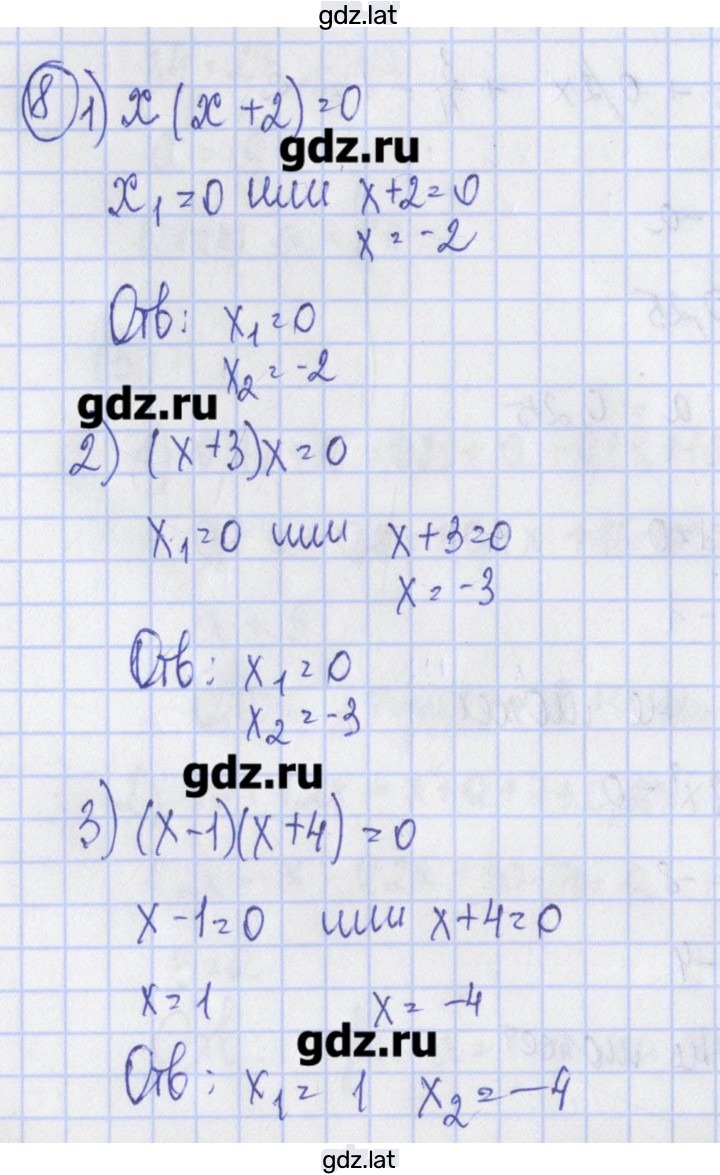 gdz.lat
8 1) x(x+2)=0
gdz.ru
x₁=0 или x+2=0
x=-2
Отв: x₁=0
x₂=-2
gdz.ru
2) (x+3)x=0
x₁=0 или x+3=0
x=-3
Отв: x₁=0
x₂=-3
gdz.ru
3) (x-1)(x+4)=0
x-1=0 или x+4=0
x=1 x=-4
gdz.ru
Отв: x₁=1 x₂=-4
gdz.lat